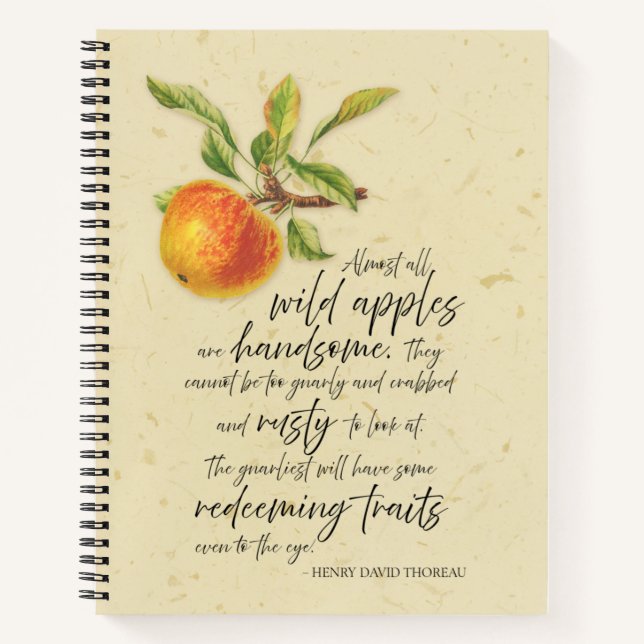 Almost all
wild apples
are handsome. They
cannot be too gnarly and crabbed
and rusty to look at.
The gnarliest will have some
redeeming traits
even to the eye.
- HENRY DAVID THOREAU